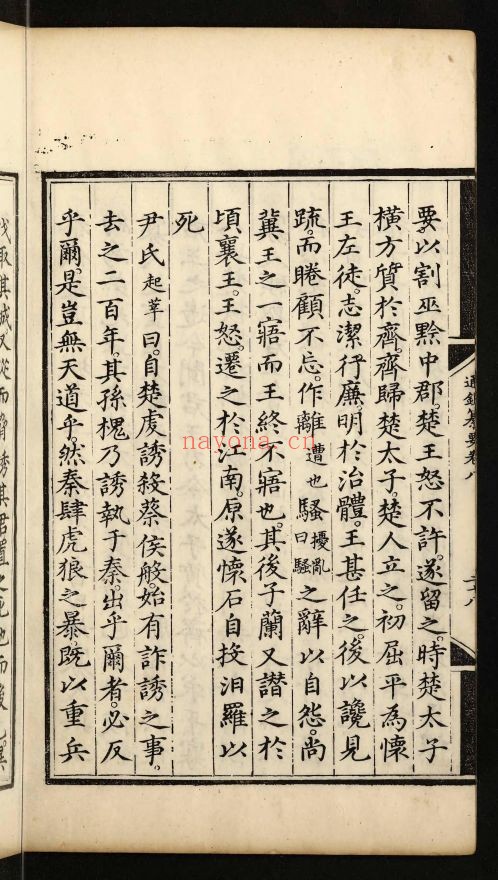 要以割巫黔中郡。楚王怒不許。遂留之。時楚太子
橫方質於齊。齊歸楚太子。楚人立之。初屈平為懷
王左徒。志潔行廉。明於治體。王甚任之。後以讒見
疏。而睠顧不忘。作離遭也騷擾亂曰騷之辭以自怨。尚
冀王之一寤。而王終不寤也。其後子蘭又譖之於
頃襄王。王怒。遷之於江南。原遂懷石自投汨羅以
死
尹氏起莘曰。自楚虔誘殺蔡侯般。始有詐誘之事。
去之二百年。其孫槐乃誘執于秦。出乎爾者。必反
乎爾。是豈無天道乎。然秦肆虎狼之暴。既以重兵
通鑑纂要卷八
nayona.cn